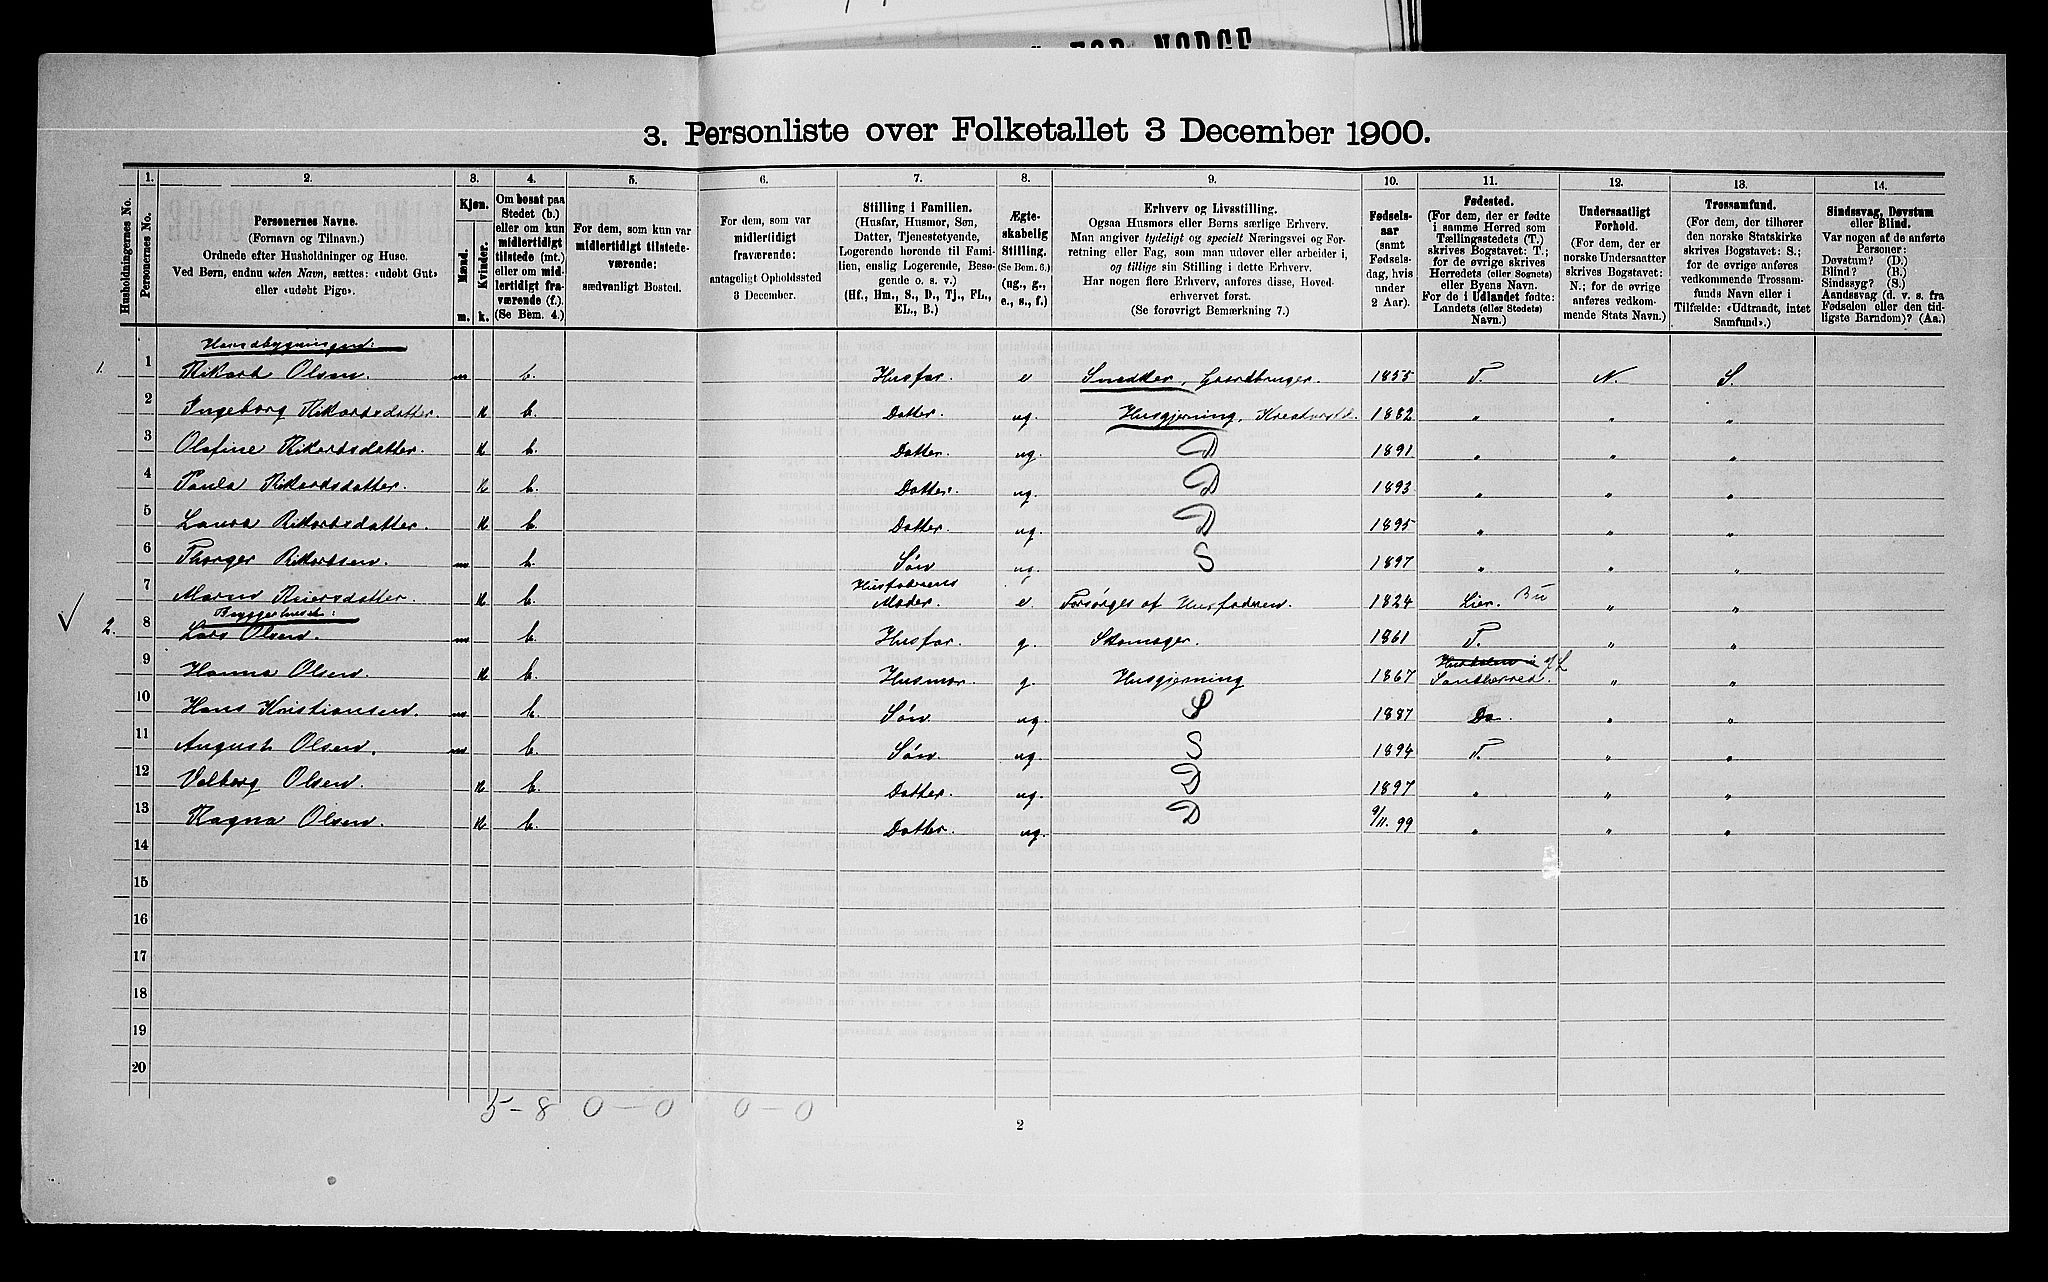 FOR NORGE
3. Personliste over Folketallet 3 December 1900.
Husholdningernes No.
1.
Personernes No.
2.
Personernes Navne.
(Fornavn og Tilnavn.)
Ordnede efter Husholdninger og Huse.
Ved Børn, endnu uden Navn, sættes: «udøbt Gut»
eller «udøbt Pige».
3.
Kjøn.
Mænd.
Kvinder.
m. k.
4.
Om bosat paa
Stedet (b.)
eller om kun
midlertidigt
tilstede (mt.)
eller om mid-
lertidigt fra-
værende (f.).
(Se Bem. 4.)
5.
For dem, som kun var
midlertidigt tilstede-
værende:
sædvanligt Bosted.
6.
For dem, som var
midlertidigt
fraværende:
antageligt Opholdssted
3 December.
7.
Stilling i Familien.
(Husfar, Husmor, Søn,
Datter, Tjenestetyende,
Logerende hørende til Fami-
lien, enslig Logerende, Besø-
gende o. s. v.)
(Hf., Hm., S., D., Tj., FL.,
EL., B.)
8.
Ægte-
skabelig
Stilling.
(Se Bem. 6.)
(ug., g.,
e., s., f.)
9.
Erhverv og Livsstilling.
Ogsaa Husmors eller Børns særlige Erhverv.
Man angiver tydeligt og specielt Næringsvei og For-
retning eller Fag, som man udøver eller arbeider i,
og tillige sin Stilling i dette Erhverv.
Har nogen flere Erhverv, anføres disse, Hoved-
erhvervet først.
(Se forøvrigt Bemærkning 7.)
10.
Fødsels-
aar
(samt
Fødsels-
dag, hvis
under
2 Aar).
11.
Fødested.
(For dem, der er fødte
i samme Herred som
Tællingsstedets (T.)
skrives Bogstavet: T.;
for de øvrige skrives
Herredets (eller Sognets)
eller Byens Navn.
For de i Udlandet fødte:
Landets (eller Stedets)
Navn.)
12.
Undersaatligt
Forhold.
(For dem, der er
norske Undersaatter
skrives Bogstavet:
N.; for de øvrige
anføres vedkom-
mende Stats Navn.)
13.
Trossamfund.
(For dem, der tilhører
den norske Statskirke
skrives Bogstavet: S.;
for de øvrige anføres
vedkommende Trossam-
funds Navn eller i
Tilfælde: «Udtraadt, intet
Samfund».)
14.
Sindssvag, Døvstum
eller Blind.
Var nogen af de anførte
Personer:
Døvstum? (D.)
Blind? (B.)
Sindssyg? (S.)
Aandssvag (d. v. s. fra
Fødselen eller den tid-
ligste Barndom)? (Aa.)
Hovedbygningen:
1. 1 Rikard Olsen. m b. Husfar. e Snedker, Gaardbruger. 1855 T. N. S.
2 Ingeborg Rikardsdatter. k b. Datter. ug. Husgjerning, 1882 " " "
3 Olafine Rikardsdatter. k b. Datter. ug. D 1891 " " "
4 Paula Rikardsdatter. k b. Datter. ug. D 1893 " " "
5 Laura Rikardsdatter. k b. Datter. ug. D 1895 " " "
6 Thorger Rikardsen. m b. Søn ug. S 1897 " " "
7 Maren Reiersdatter. k b. Husfaderens Moder. e Forsørges af Husfaderen. 1824 Lier. Bu " "
Bryggerhuset:
2. 8 Lars Olsen. m b. Husfar. g. Skomager. 1861 T. " "
9 Hanna Olsen. k b. Husmor. g. Husgjerning 1867 Sandherred. " "
10 Hans Kristiansen. m b. Søn. ug. S 1887 Do. " "
11 August Olsen. m b. Søn ug. S 1894 T. " "
12 Valborg Olsen. k b. Datter. ug. D 1897 " " "
13 Ragna Olsen. k b. Datter. ug. D 9/11. 99 " " "
14
15
16
17
18
19
20
5 - 8 0 - 0 0 - 0
2